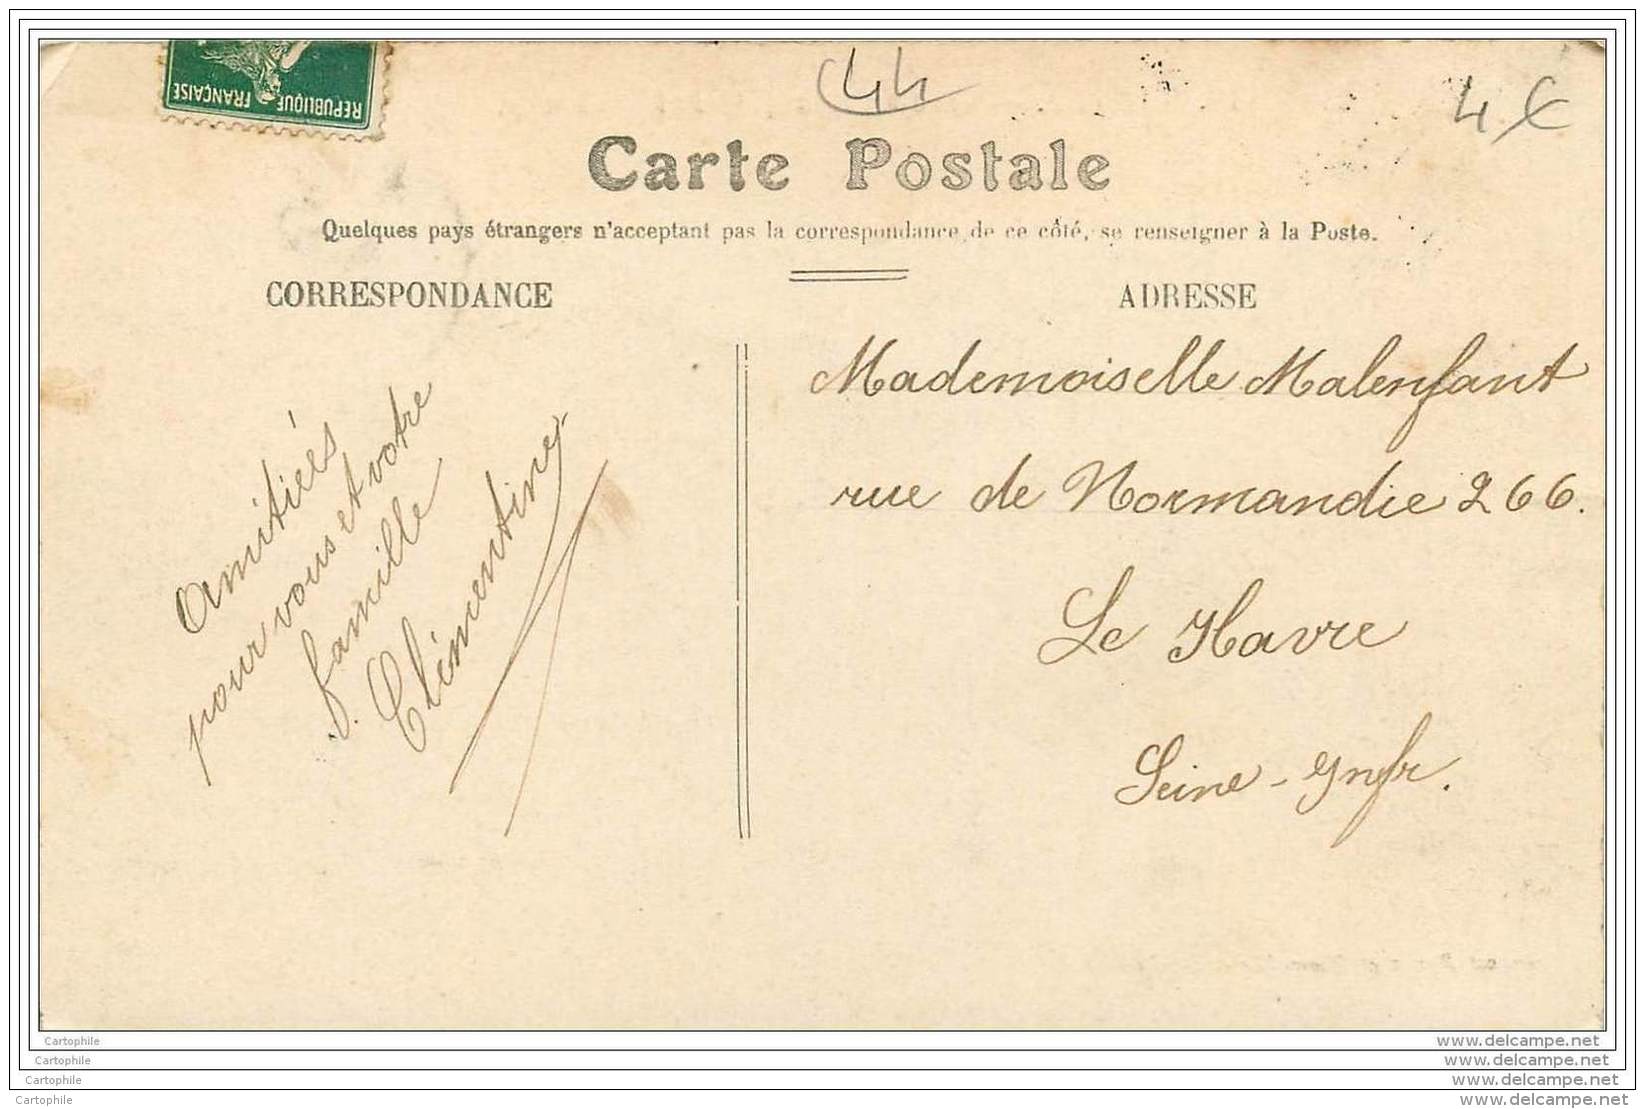 REPUBLIQUE FRANÇAISE
44
4€
Carte Postale
Quelques pays étrangers n'acceptant pas la correspondance de ce côté, se renseigner à la Poste.
CORRESPONDANCE
Amitiées
pour vous et votre
famille
Clémentine
ADRESSE
Mademoiselle Malenfant
rue de Normandie 266.
Le Havre
Seine-Ynfr.
Cartophile
www.delcampe.net
Cartophile
www.delcampe.net
Cartophile
www.delcampe.net
Cartophile
www.delcampe.net